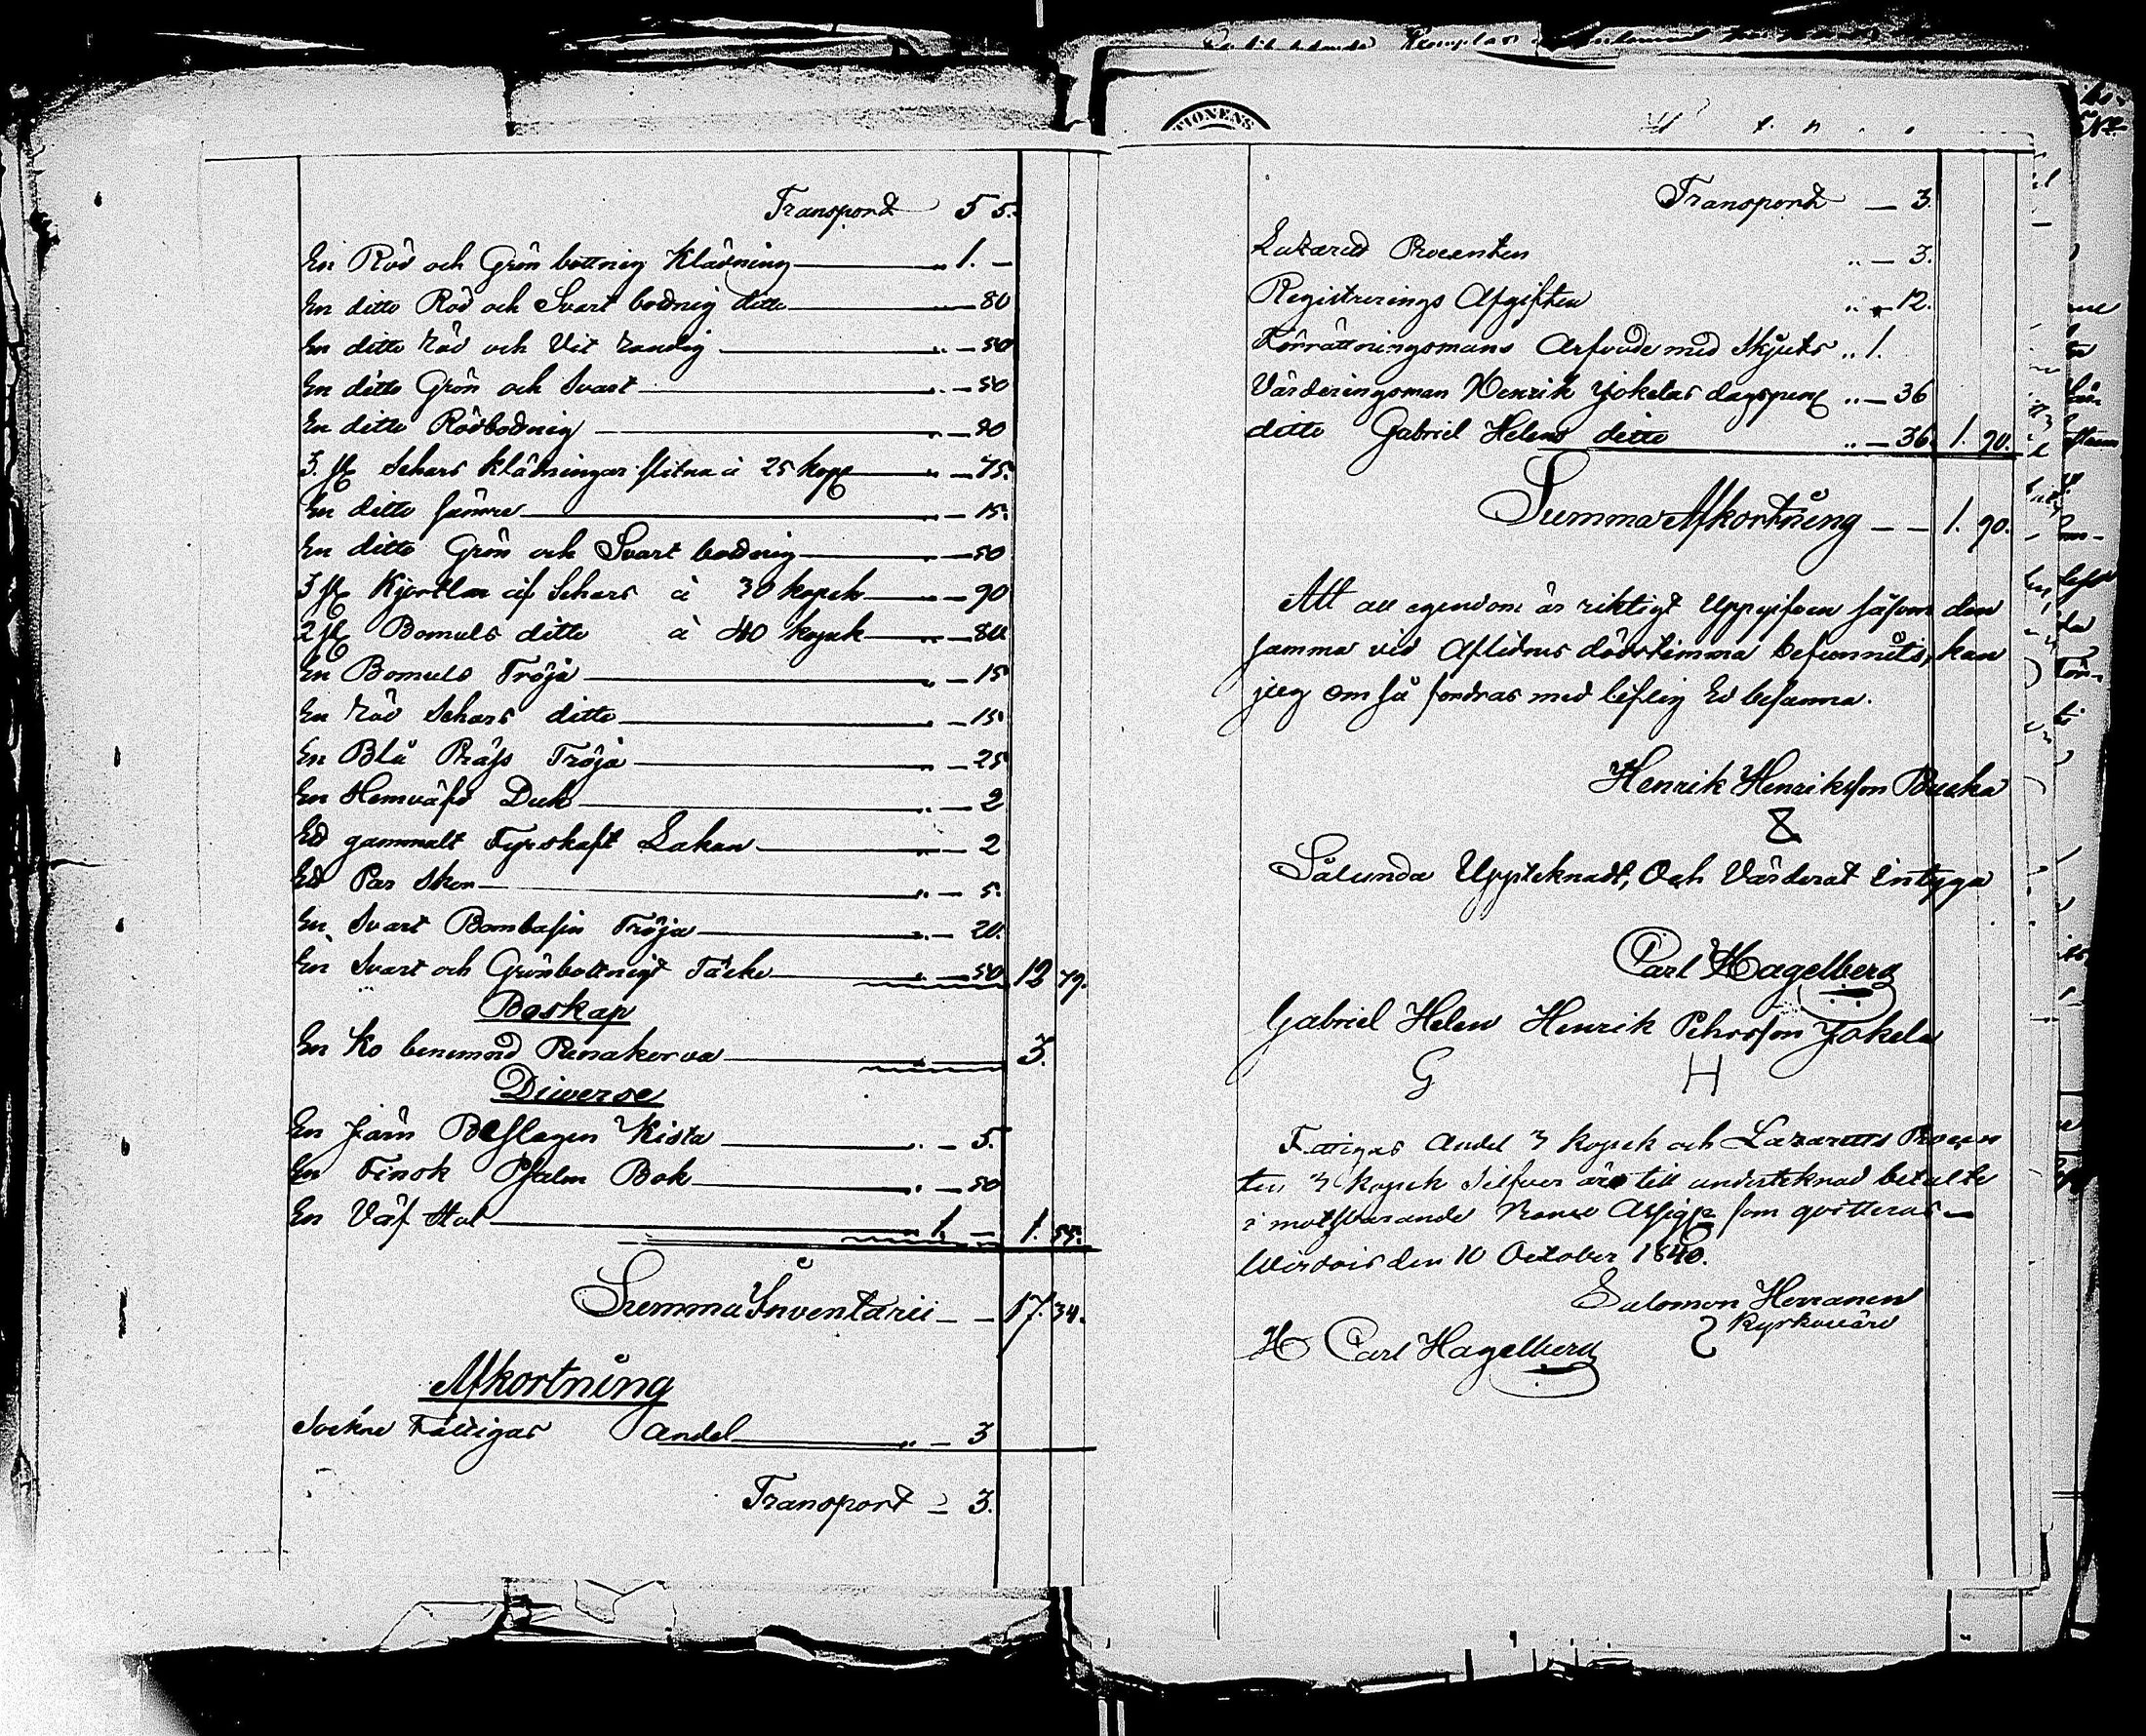 Transport 5 5.
En Röd och Grön bottnig Klädning „ 1. —
En ditto Röd och Svart bodnig ditto „ — 80
En ditto Röd och Vit randig „ — 50
En ditto Grön och Svart „ — 50
En ditto Rödbodnig „ — 80
3 st Schars klädningar slitna à 25 kop „ — 75.
En ditto sämre „ — 15.
En ditto Grön och Svart bodnig „ — 50
3 st Kjortlar af Schars à 30 kopek „ — 90
2 st Bomuls ditto à 40 kopek „ — 80.
En Bomuls Tröja „ — 15
En Röd Schars ditto „ — 15.
En Blå Tröja „ — 25
En Hemväfd Duk „ — 2
Ed gammalt Fyrskaft Lakan „ — 2
Ed Par Skor „ — 5.
En Svart Bombasin Tröja „ — 20.
En Svart och Grönbottnigt Täcke „ — 50 12 79.
Boskap
En Ko benemnd Renakorva „ — 3.
Diverse
En Järn Beslagen Kista „ — 5.
En Finsk Psalm Bok „ — 50
En Väf Stol „ 1. — 1. 55.
Summa Inventarii — — 17. 34.
Afkortning
Sockne Fattigas Andel „ — 3
Transport — 3.
TIONENS
Transport — 3.
Lazaretts Procenten „ — 3.
Registrerings Afgiften „ — 12.
Förrättningsmans Arfvode med Skjuts „ 1.
Värderingsman Henrik Yjokelas dagspen „ — 36
ditto Gabriel Helens ditto „ — 36. 1. 90.
Summa Afkortning — — 1. 90.
Att all egendom är riktigt Uppgifven såsom den
samma vid Aflidnes dödstimma befunnits, kan
jag om så fordras med liflig Ed besanna.
Henrik Henriksson Buska
Sålunda Upptecknadt, Och Värderat Intyga
Carl Hagelberg
Gabriel Helen Henrik Pehrsson Jokela
G H
Fattigas Andel 3 kopek och Lazaretts Procen
ten 3 kopek Silfver äro till undertecknad betalte
i motsvarande Banco Assign som qvitteras —
Wirdois den 10 October 1840.
Salomon Herranen
Kyrkovärd
Carl Hagelberg